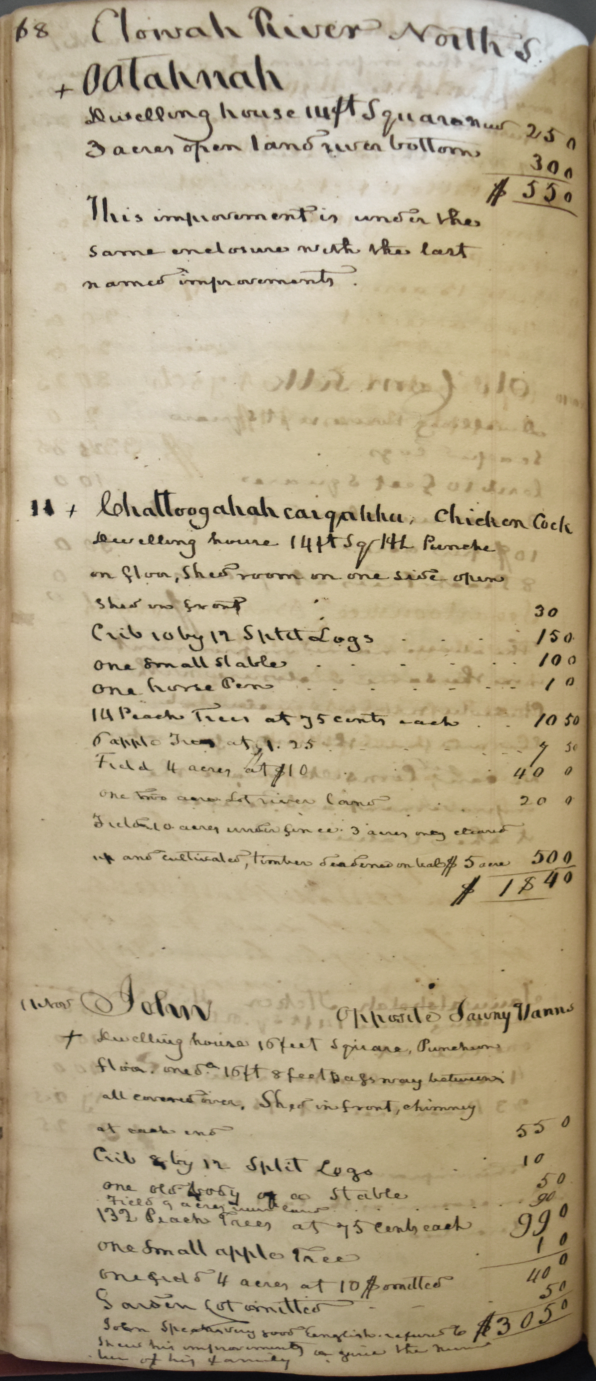 68 Etowah River North S.
+ Ootahnah
Dwelling house 14ft Square new 25 0
3 acres open land river bottom 30 0
$ 55 0
This improvement is under the
same enclosure with the last
named improvements.
11 + Chattoogahah caigahhu, Chicken Cock
Dwelling house 14ft Sq Punche
on floor, Shed room on one side open
Shed in front 30
Crib 10 by 12 Split Logs 15 0
one small stable 10 0
one horse Pen 1 0
14 Peach Trees at 75 cents each 10 50
6 apple Trees at 1.25 7 50
Field 4 acres at $10 40 0
one two acre Lot river land 20 0
Field 10 acres under fence 3 acres only cleared
up and cultivated, timber deadened on bal $5 acre 50 0
$ 184 0
11 Nov John Opposite Vanns
+ Dwelling house 16 feet Square, Puncheon
floor. one do 16ft 8 feet Passway between
all covered over, Shed in front, chimney
at each end 55 0
Crib 8 by 12 Split Logs 10
one old body of a Stable 5 0
Field 9 acres land 90
132 Peach Trees at 75 cents each 99 0
one small apple tree 1 0
one field 4 acres at 10$ omitted 40 0
Garden Lot omitted 5 0
$305 0
John Speaks very good English. refused to
shew his improvements or give the num
ber of his family